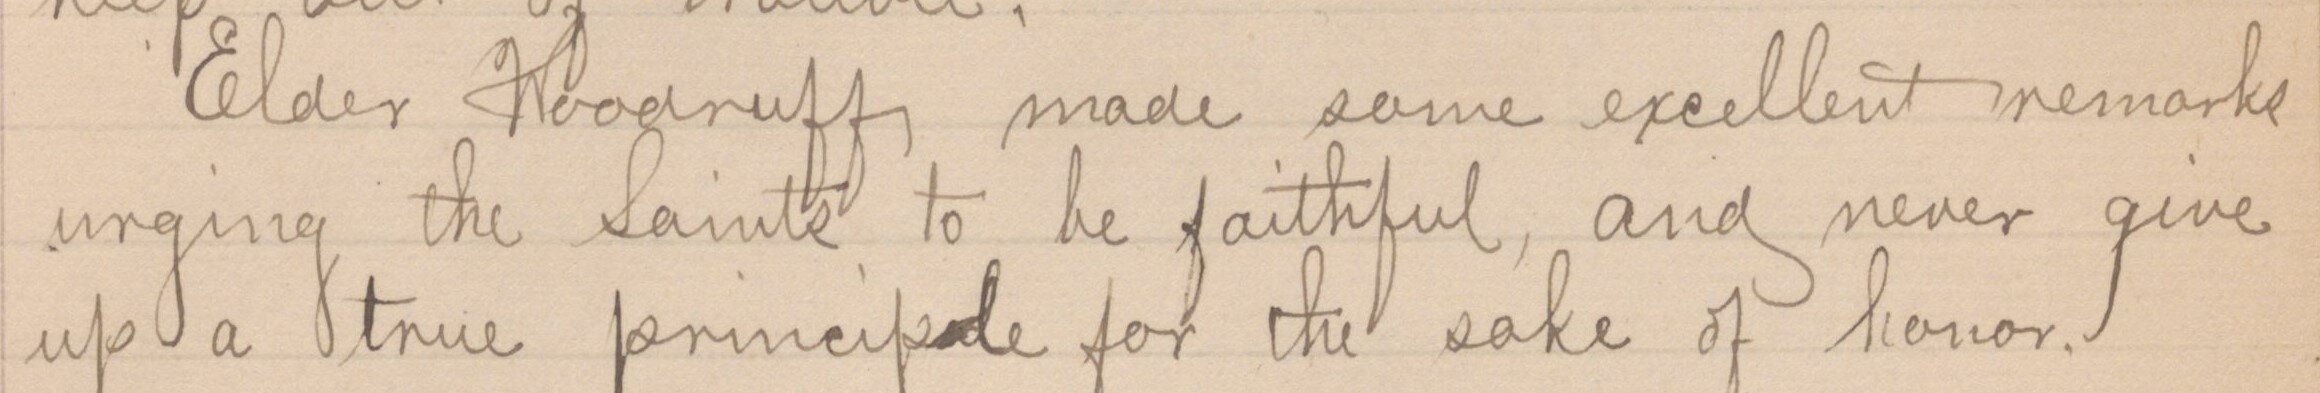 keep out of trouble.
Elder Woodruff, made some excellent remarks
urging the Saints to be faithful, and never give
up a true principle for the sake of honor.